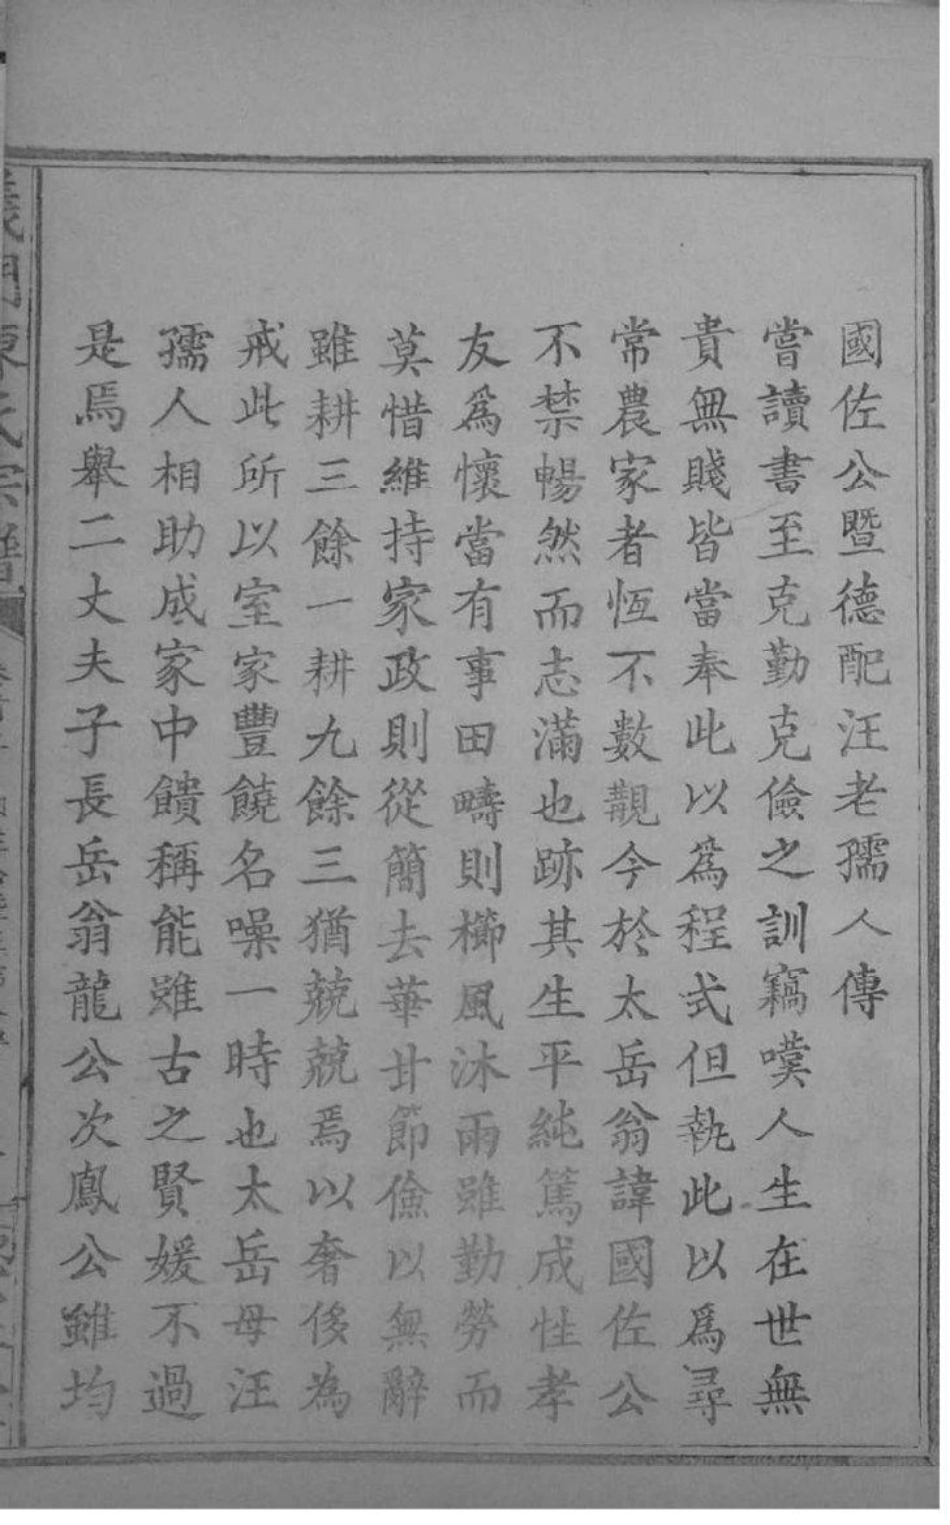 國佐公暨德配汪老孺人傳
嘗讀書至克勤克儉之訓竊嘆人生在世無
貴無賤皆當奉此以為程式但執此以爲尋
常農家者恆不數覯今於太岳翁諱國佐公
不禁暢然而志滿也跡其生平純篤成性孝
友爲懷當有事田疇則櫛風沐雨雖勤勞而
莫惜維持家政則從簡去華甘節儉以無辭
雖耕三餘一耕九餘三猶兢兢焉以奢侈為
戒此所以室家豐饒名噪一時也太岳母汪
孺人相助成家中饋稱能雖古之賢媛不過
是焉舉二丈夫子長岳翁龍公次鳳公雖均
義門陳氏宗譜